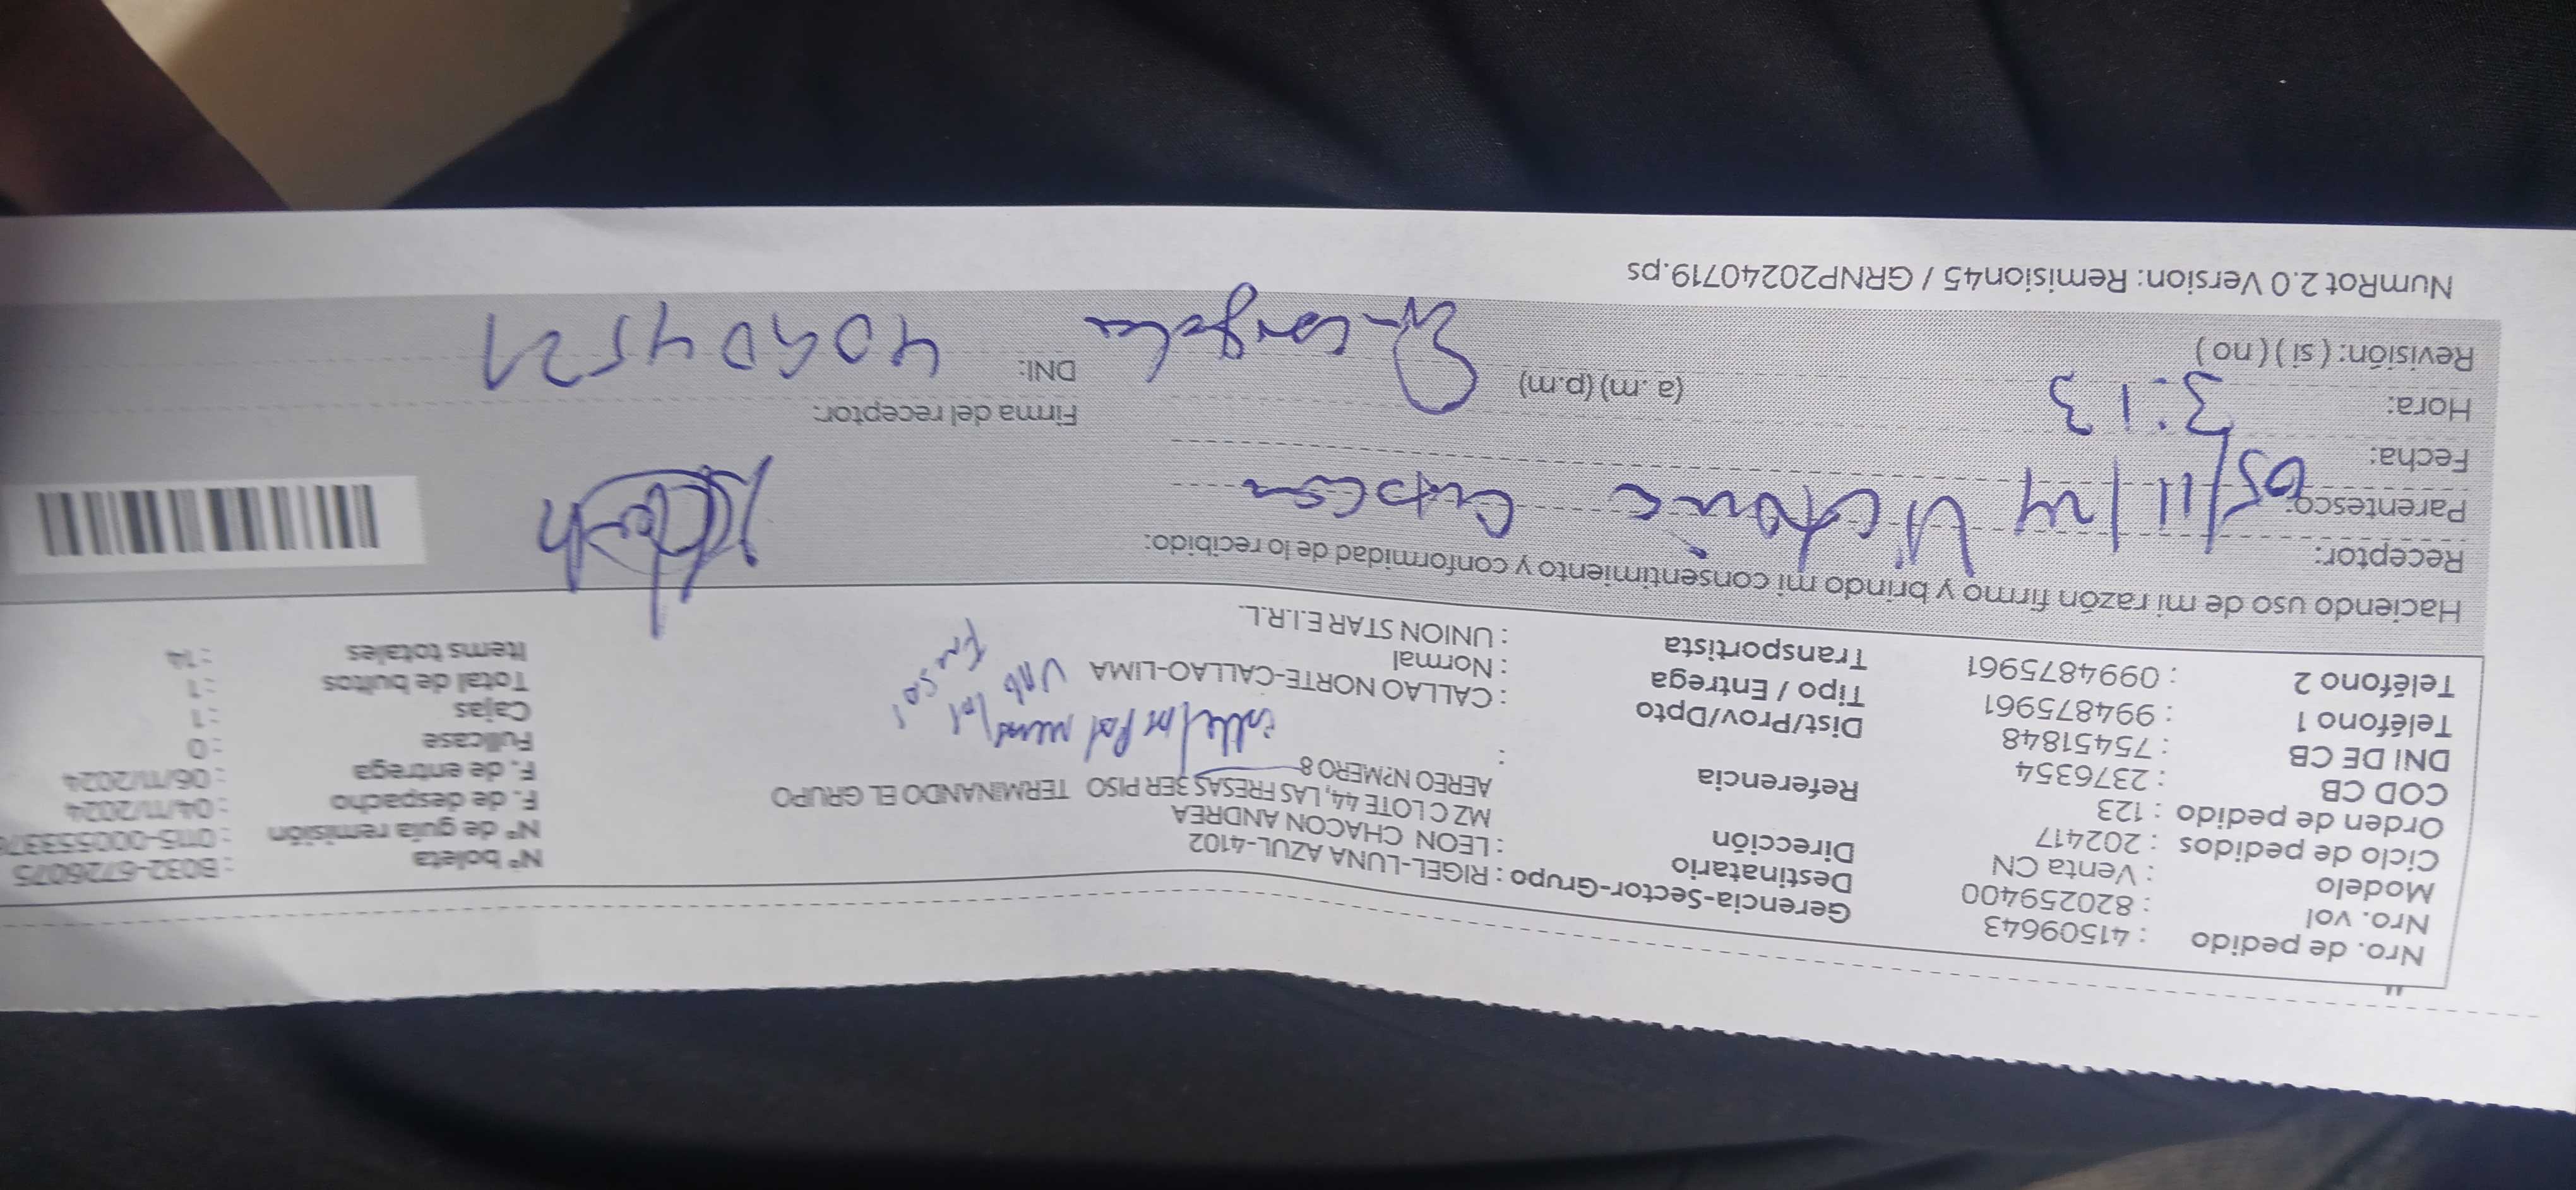 Nro. de pedido : 41509643
Nro. vol : 820259400
Modelo : Venta CN
Ciclo de pedidos : 202417
Orden de pedido : 123
COD CB : 2376354
DNI DE CB : 75451848
Teléfono 1 : 994875961
Teléfono 2 : 0994875961
Gerencia-Sector-Grupo : RIGEL-LUNA AZUL-4102
Destinatario : LEON CHACON ANDREA
Dirección MZ C LOTE 44, LAS FRESAS 3ER PISO TERMINANDO EL GRUPO
AEREO N?MERO 8
Referencia :
Dist/Prov/Dpto : CALLAO NORTE-CALLAO-LIMA
Tipo / Entrega : Normal
Transportista : UNION STAR E.I.R.L.
N° boleta : B032-6726075
N° de guía remisión : 0115-00055337
F. de despacho : 04/11/2024
F. de entrega : 06/11/2024
Fullcase : 0
Cajas : 1
Total de bultos : 1
Items totales : 14
Haciendo uso de mi razón firmo y brindo mi consentimiento y conformidad de lo recibido:
Receptor:
Parentesco:
Fecha: 05/11/24
Hora: 3:13 (a. m) (p.m)
Revisión: ( si ) ( no )
Firma del receptor:
DNI:
NumRot 2.0 Version: Remision45 / GRNP20240719.ps